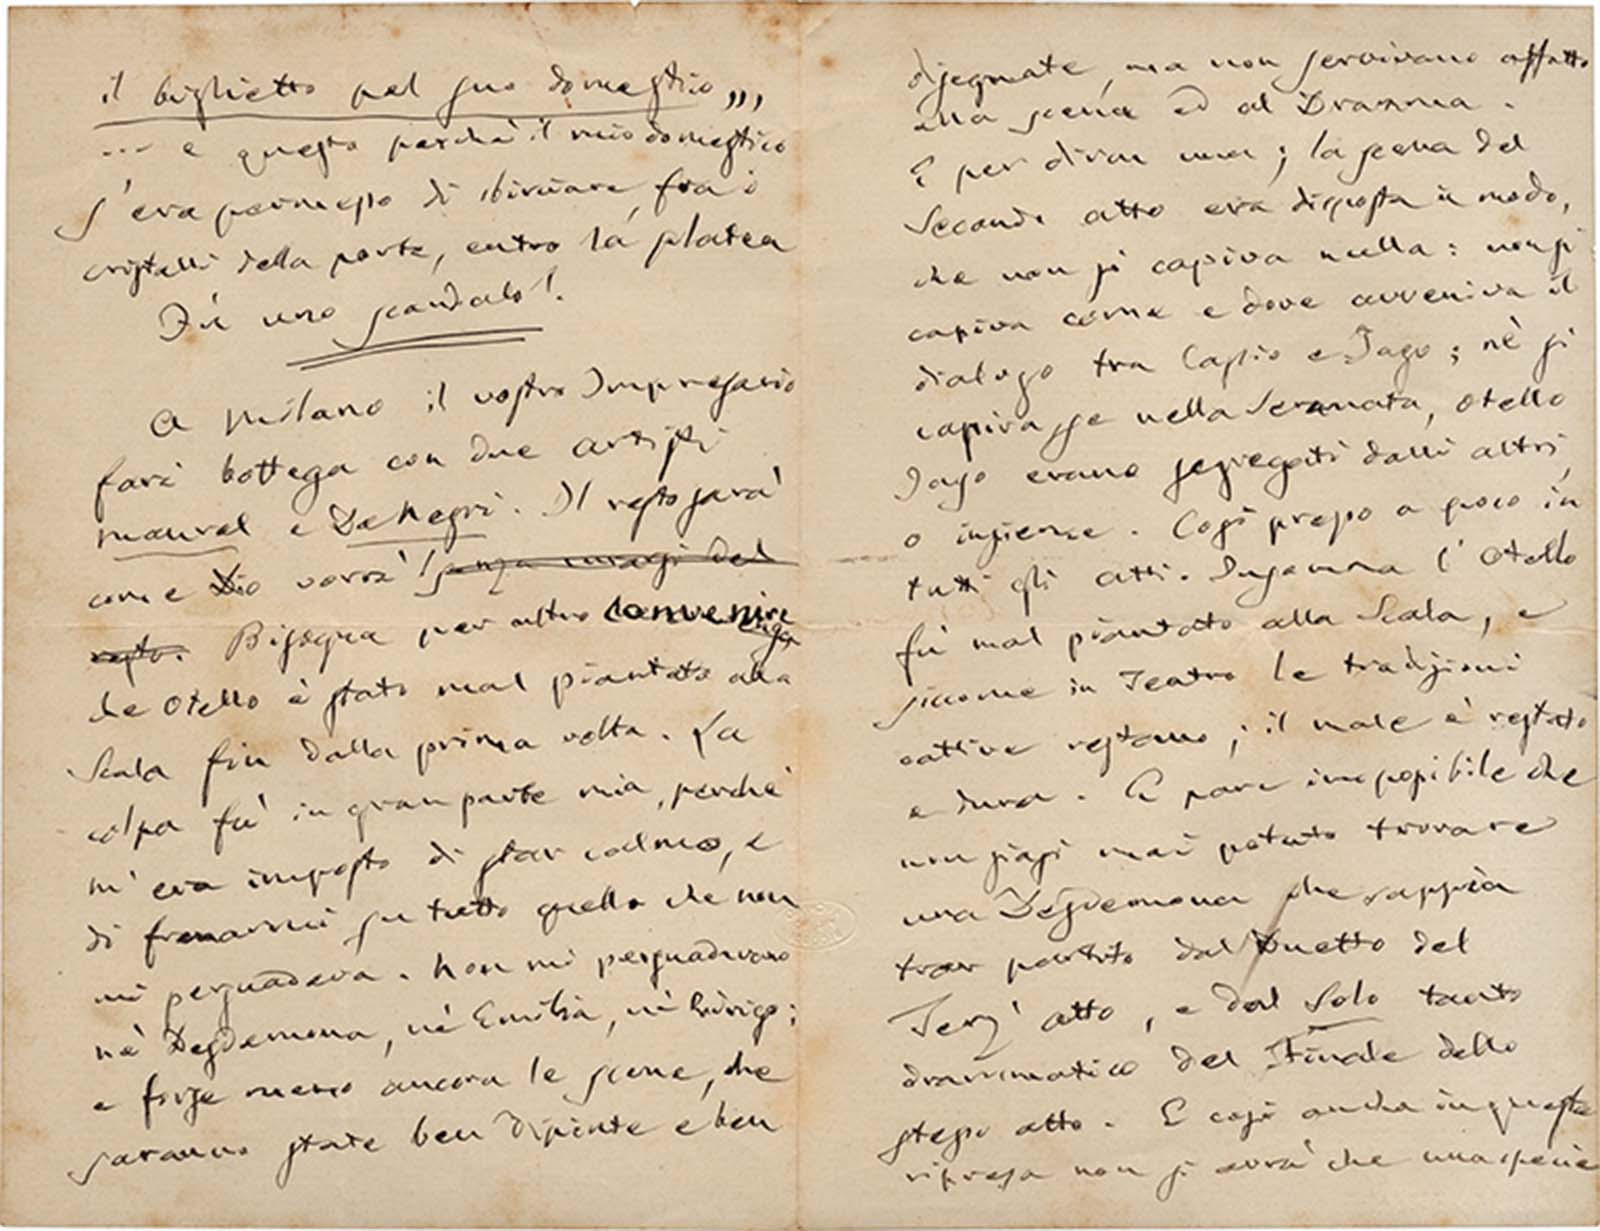 il biglietto pel suo domestico „,
... e questo perchè il mio domestico
s'era permesso di sbirciare, fra i
cristalli della porta, entro la platea
Fù uno scandalo!
A Milano il vostro Impresario
farà bottega con due artisti
Maurel e DeNegri. Il resto sarà
come Dio vorrà! senza curarsi del
resto. Bisogna per altro convenire
che Otello è stato mal piantato alla
Scala fin dalla prima volta. La
colpa fù in gran parte mia, perchè
m'era imposto di star calmo, e
di frenarmi su tutto quello che non
mi persuadeva. Non mi persuadevano
nè Desdemona, nè Emilia, nè Rodrigo;
e forse meno ancora le scene, che
saranno state ben dipinte e ben
disegnate, ma non servivano affatto
alla scena ed al Dramma.
E per dirne una; la scena del
Secondo atto era disposta in modo,
che non si capiva nulla: non si
capiva come e dove avveniva il
dialogo tra Cassio e Jago; nè si
capiva se nella Serenata, Otello
Jago erano segregati dalli altri,
o insieme. Così presso a poco in
tutti gli atti. Insomma l'Otello
fù mal piantato alla Scala, e
siccome in Teatro le tradizioni
cattive restano; il male è restato
e dura. E pare impossibile che
non siasi mai potuto trovare
una Desdemona che sappia
trar partito dal Duetto del
Terz' atto, e dal Solo tanto
drammatico del Finale dello
stesso atto. E così anche in questa
ripresa non si avrà che una specie